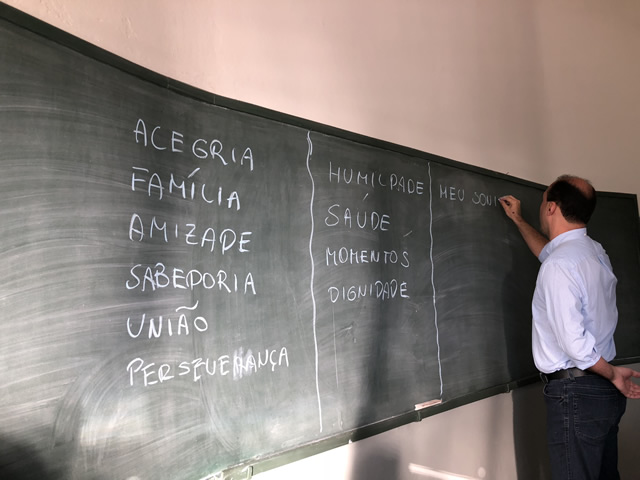 ACEGRIA
FAMÍLIA
AMIZADE
SABEDORIA
UNIÃO
PERSEVERANÇA
HUMILDADE
SAÚDE
MOMENTOS
DIGNIDADE
MEU